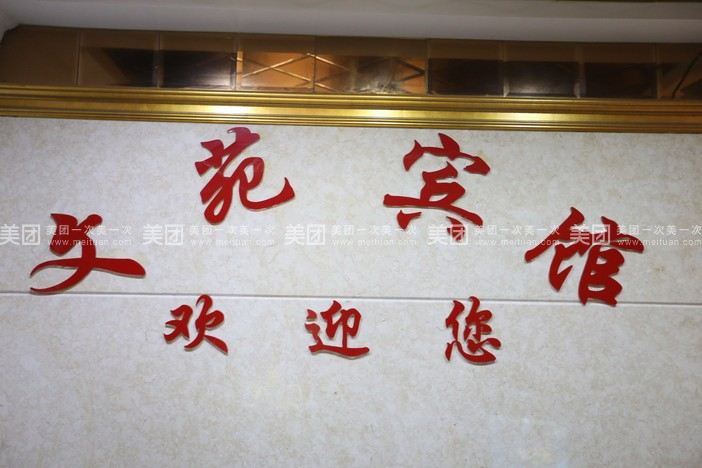 苑宾馆
欢迎您
美团 美团一次美一次 www.meituan.com 美团 美团一次美一次 www.meituan.com 美团 美团一次美一次 www.meituan.com 美团 美团一次美一次 www.meituan.com 美团 美团一次美一次 www.meituan.com